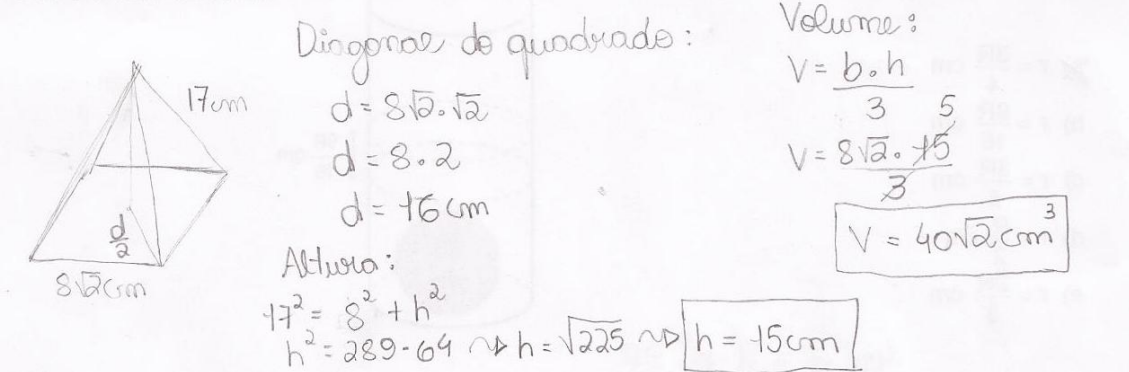 17cm
d/2
8√2cm
Diagonal do quadrado:
d = 8√2.√2
d = 8.2
d = 16cm
Altura:
17² = 8² + h²
h² = 289-64 ⇝ h = √225 ⇝ h = 15cm
Volume:
V = b.h
3 5
V = 8√2.15
3
V = 40√2cm³